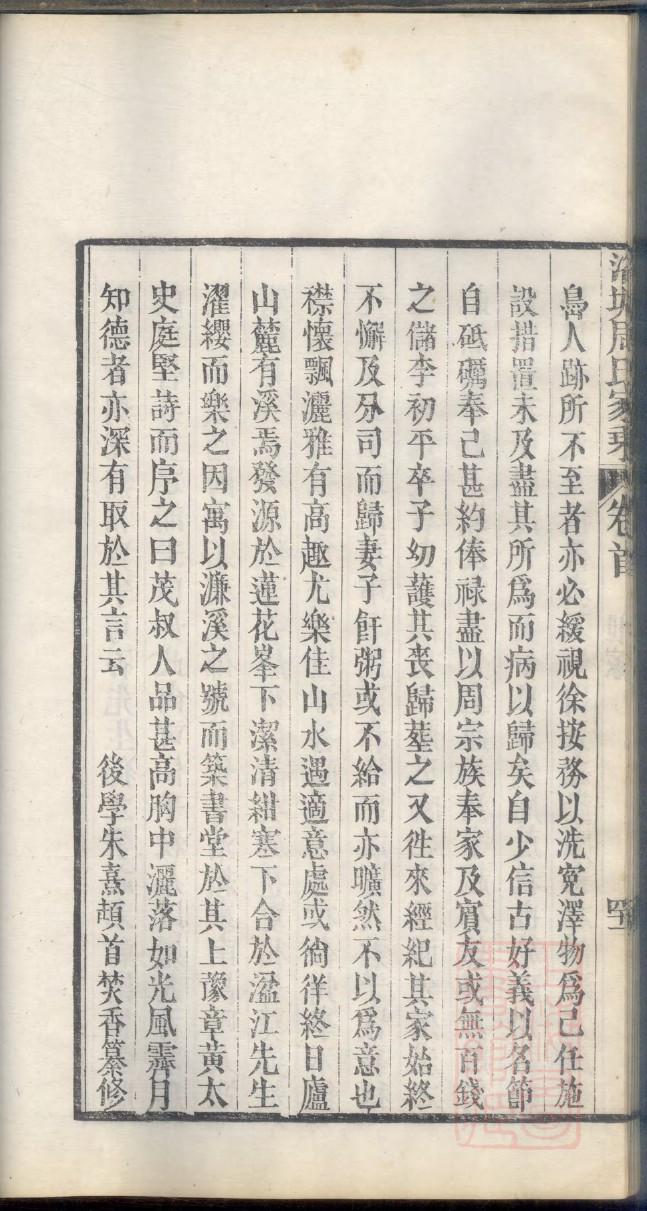 周氏家乘 卷首
島人跡所不至者亦必緩視徐按務以洗冤澤物爲己任施
設措置未及盡其所爲而病以歸矣自少信古好義以名節
自砥礪奉己甚約俸祿盡以周宗族奉家及賓友或無百錢
之儲李初平卒子幼護其喪歸塟之又徃來經紀其家始終
不懈及分司而歸妻子飦粥或不給而亦曠然不以爲意也
襟懷飄灑雅有高趣尤樂佳山水遇適意處或徜徉終日廬
山麓有溪焉發源於蓮花峯下潔清紺寒下合於湓江先生
濯纓而樂之因寓以濂溪之號而築書堂於其上豫章黃太
史庭堅詩而序之曰茂叔人品甚高胸中灑落如光風霽月
知德者亦深有取於其言云 後學朱熹頓首焚香纂修